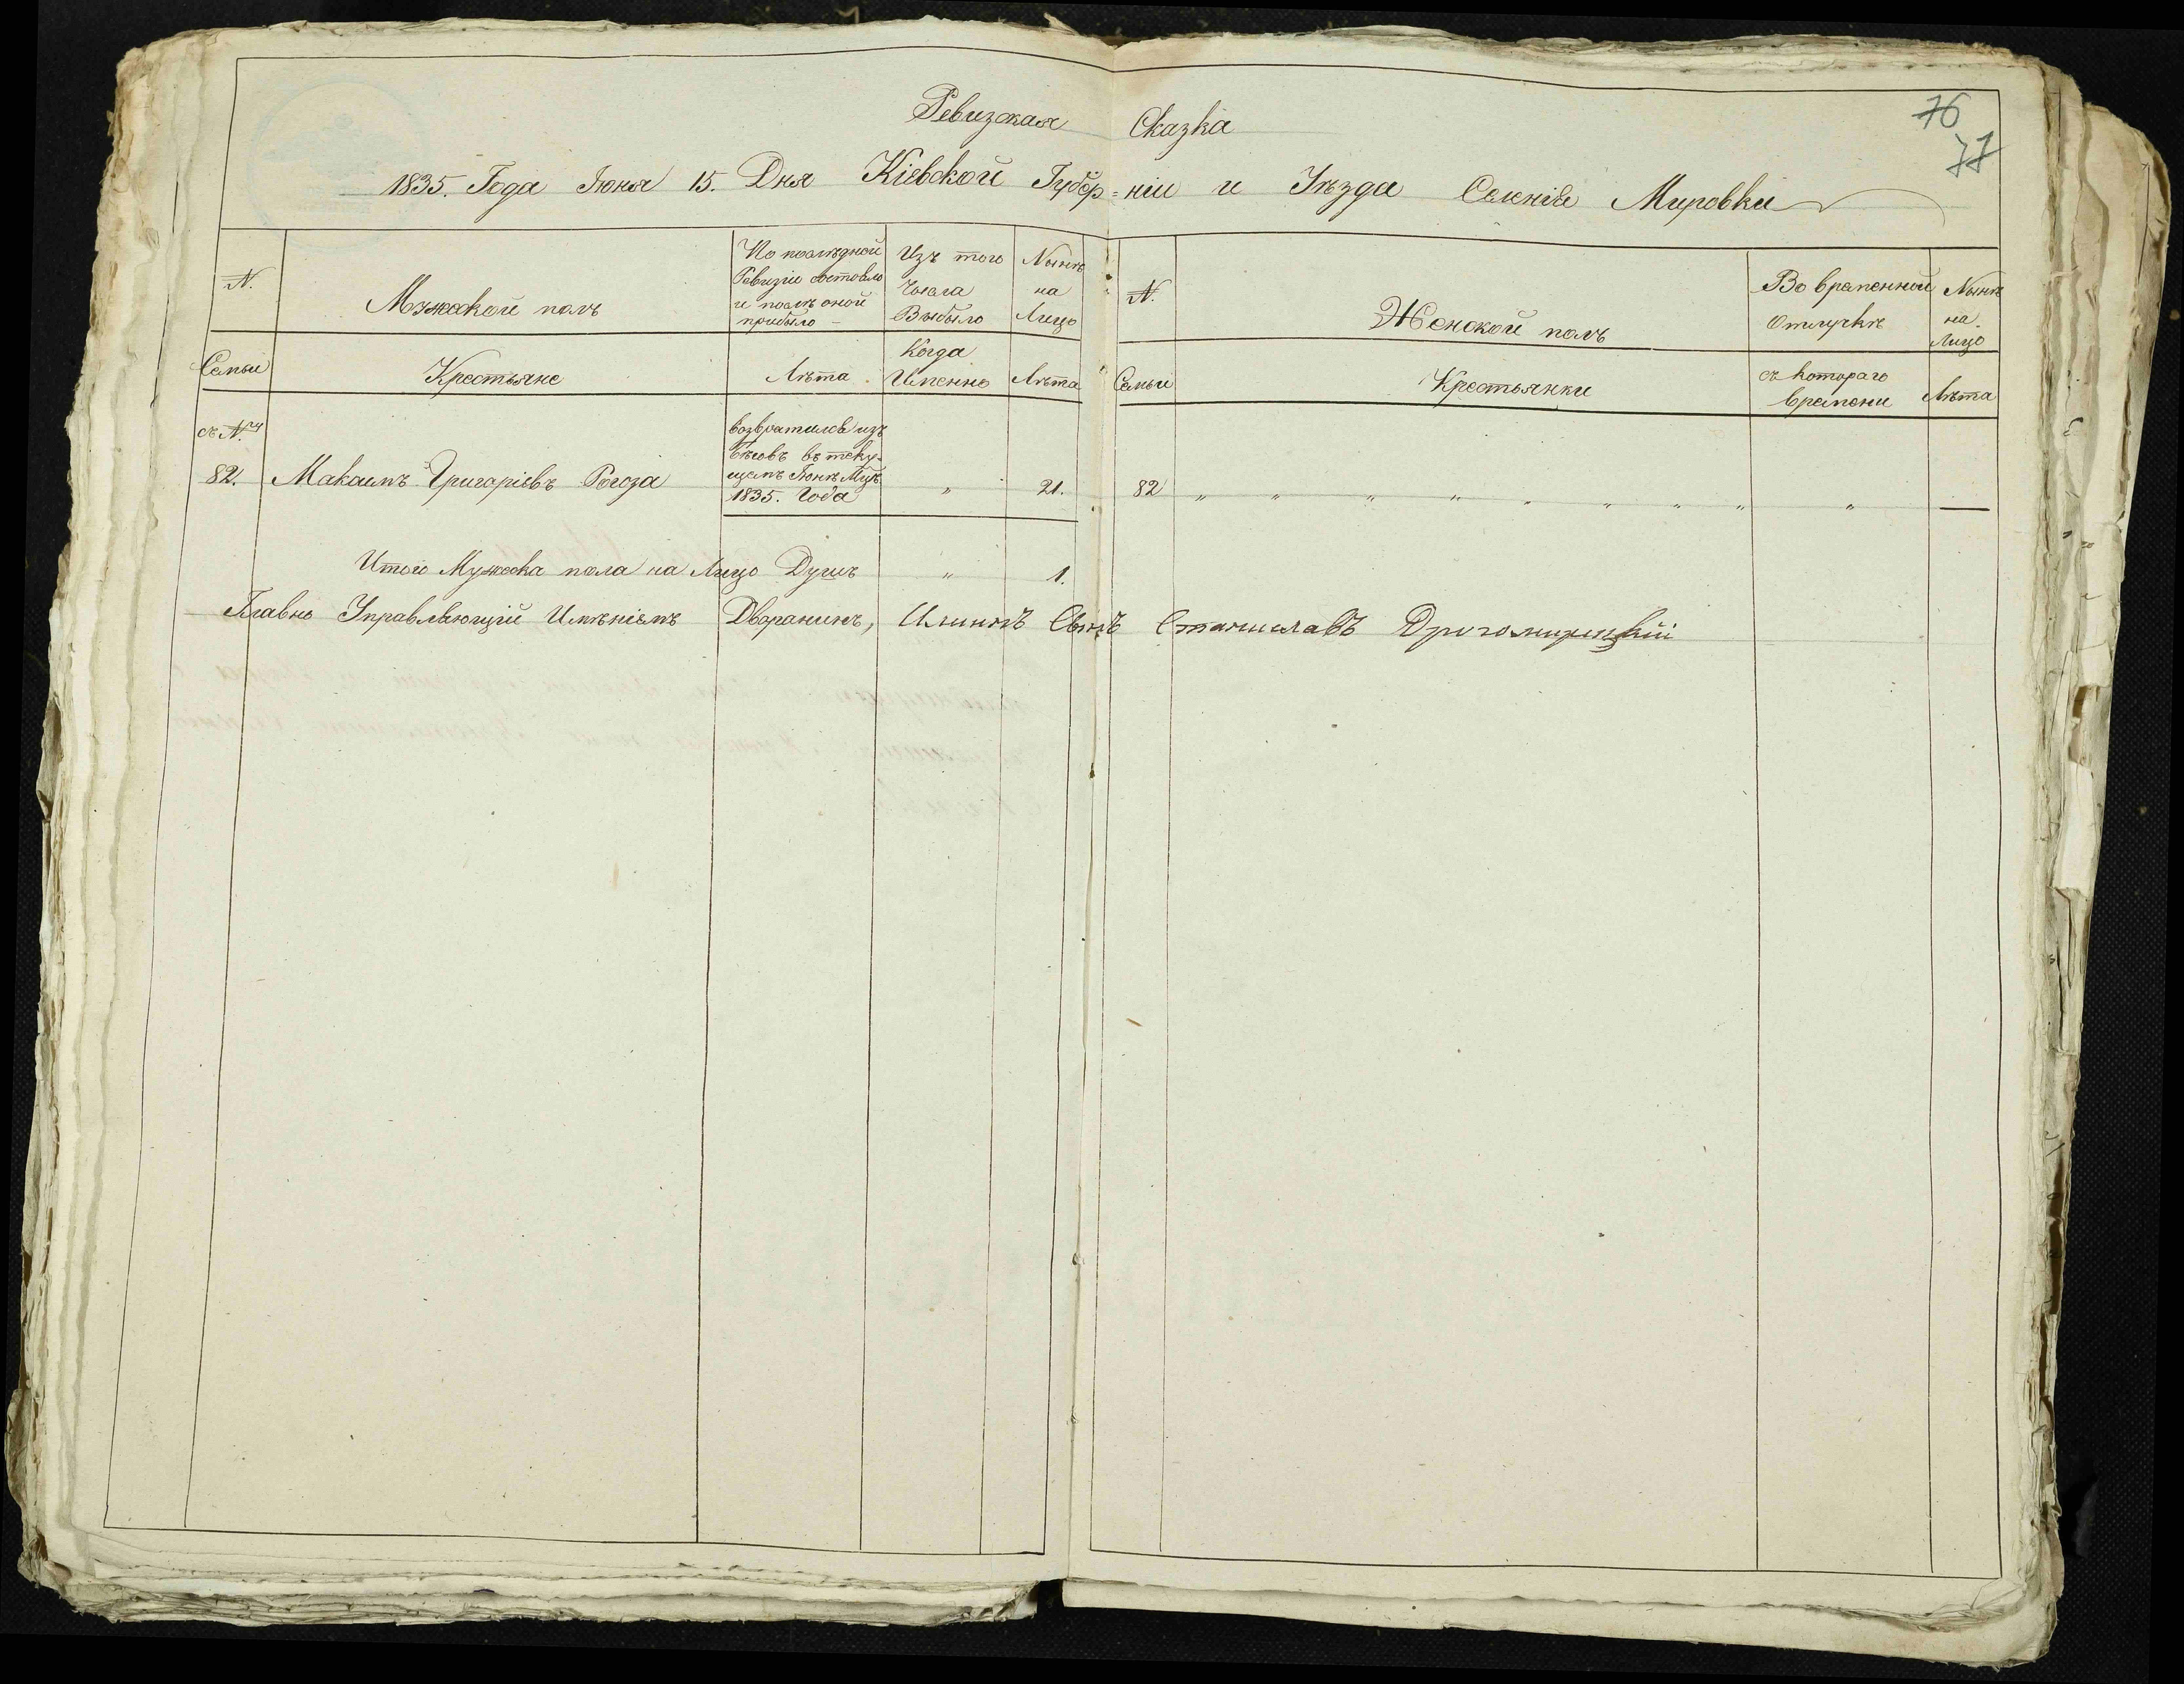 76
77
Ревизкая Сказка
1835. Года Іюня 15. Дня Кіевской Губер=ніи и Уѣзда Селенія Мировки
N.
Мужеской полъ
По последной
Ревизіи состояло
и послѣ оной
прибыло –
Изъ того
Числа
Выбыло
Нынѣ
на
Лицо
N.
Женской полъ
Во временной
Отлучкѣ
Нынѣ
на
Лицо
Семьи
Крестьяне
Лѣта
Когда
Именно
Лѣта
Семьи
Крестьянки
съ котораго
времени
Лѣта
съ N.
82. Максимъ Григоріевъ Рогоза
возвратился изъ
бѣговъ въ теку-
щемъ Іюнѣ Мцѣ
1835. Года
" 21.
82 " " " " " " " " " —
Итого Мужеска пола на Лицо Душъ " 1.
Главно Управляющій Имѣніемъ Дворанинъ, Сынъ Станиславъ